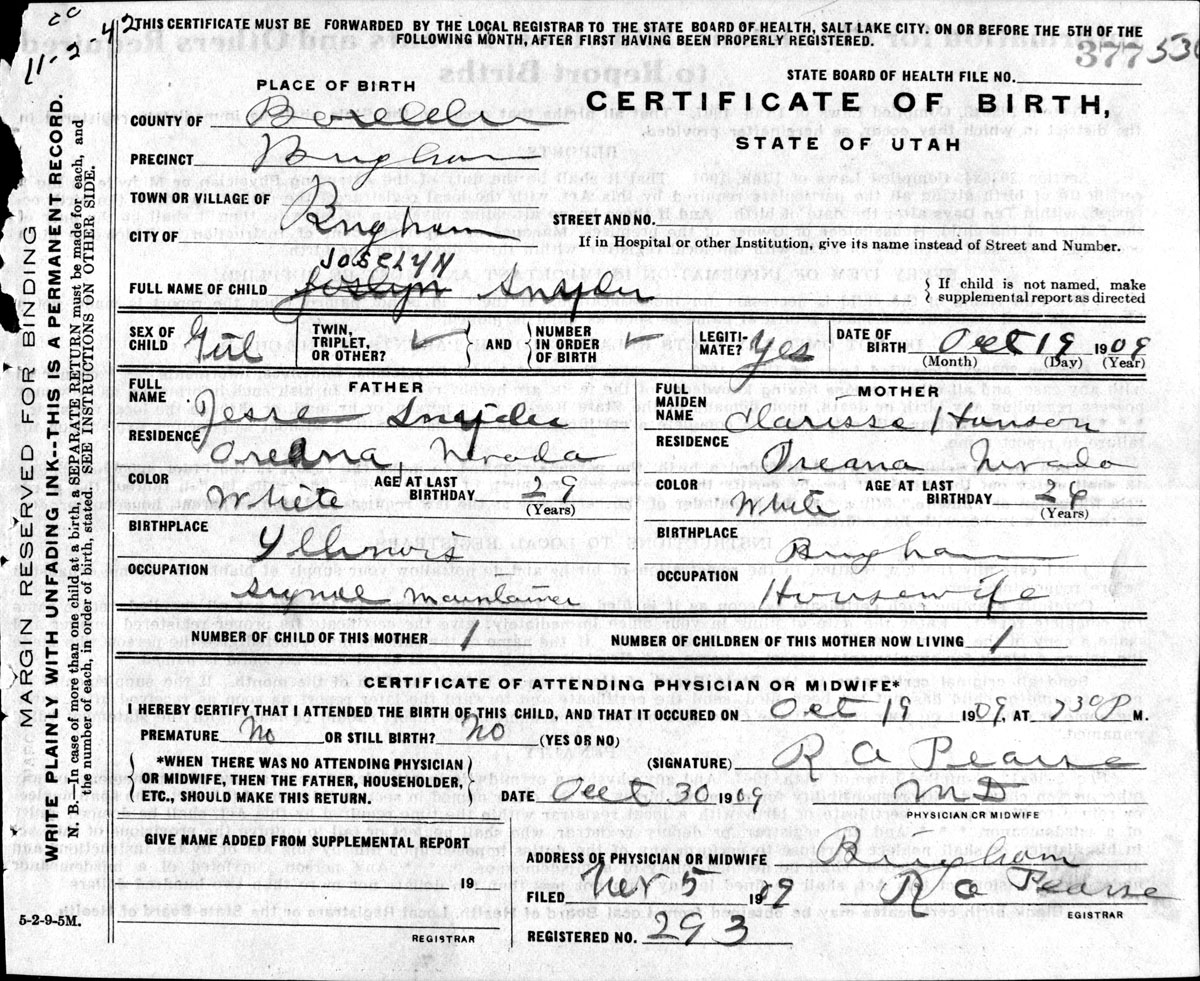 11-2-42
THIS CERTIFICATE MUST BE FORWARDED BY THE LOCAL REGISTRAR TO THE STATE BOARD OF HEALTH, SALT LAKE CITY. ON OR BEFORE THE 5TH OF THE
FOLLOWING MONTH, AFTER FIRST HAVING BEEN PROPERLY REGISTERED.
377
STATE BOARD OF HEALTH FILE NO.
PLACE OF BIRTH
CERTIFICATE OF BIRTH,
STATE OF UTAH
COUNTY OF Boxelder
PRECINCT Brigham
TOWN OR VILLAGE OF
CITY OF Brigham
STREET AND NO.
If in Hospital or other Institution, give its name instead of Street and Number.
JOSELYN
FULL NAME OF CHILD Joslyn Snyder
If child is not named, make
supplemental report as directed
SEX OF CHILD Girl
TWIN, TRIPLET, OR OTHER?
AND
NUMBER IN ORDER OF BIRTH
LEGITI-MATE? Yes
DATE OF BIRTH Oct 19 1909
(Month) (Day) (Year)
FATHER
FULL NAME Jesse Snyder
RESIDENCE Oreana, Nevada
COLOR White AGE AT LAST BIRTHDAY 29
(Years)
BIRTHPLACE Yllinois
OCCUPATION Signal Maintainer
MOTHER
FULL MAIDEN NAME Clarissa Hanson
RESIDENCE Oreana Nevada
COLOR White AGE AT LAST BIRTHDAY
(Years)
BIRTHPLACE Brigham
OCCUPATION Housewife
NUMBER OF CHILD OF THIS MOTHER 1 NUMBER OF CHILDREN OF THIS MOTHER NOW LIVING 1
CERTIFICATE OF ATTENDING PHYSICIAN OR MIDWIFE*
I HEREBY CERTIFY THAT I ATTENDED THE BIRTH OF THIS CHILD, AND THAT IT OCCURED ON Oct 19 1909, AT 730 P M.
PREMATURE No OR STILL BIRTH? No (YES OR NO)
*WHEN THERE WAS NO ATTENDING PHYSICIAN
OR MIDWIFE, THEN THE FATHER, HOUSEHOLDER,
ETC., SHOULD MAKE THIS RETURN.
(SIGNATURE) R A Pearse
DATE Oct 30 1909 M D
PHYSICIAN OR MIDWIFE
GIVEN NAME ADDED FROM SUPPLEMENTAL REPORT
19
REGISTRAR
ADDRESS OF PHYSICIAN OR MIDWIFE Brigham
FILED Nov 5 1909 R A Pearse
EGISTRAR
REGISTERED NO. 293
5-2-9-5M.
MARGIN RESERVED FOR BINDING
WRITE PLAINLY WITH UNFADING INK--THIS IS A PERMANENT RECORD.
N. B.—In case of more than one child at a birth, a SEPARATE RETURN must be made for each, and
the number of each, in order of birth, stated. SEE INSTRUCTIONS ON OTHER SIDE.